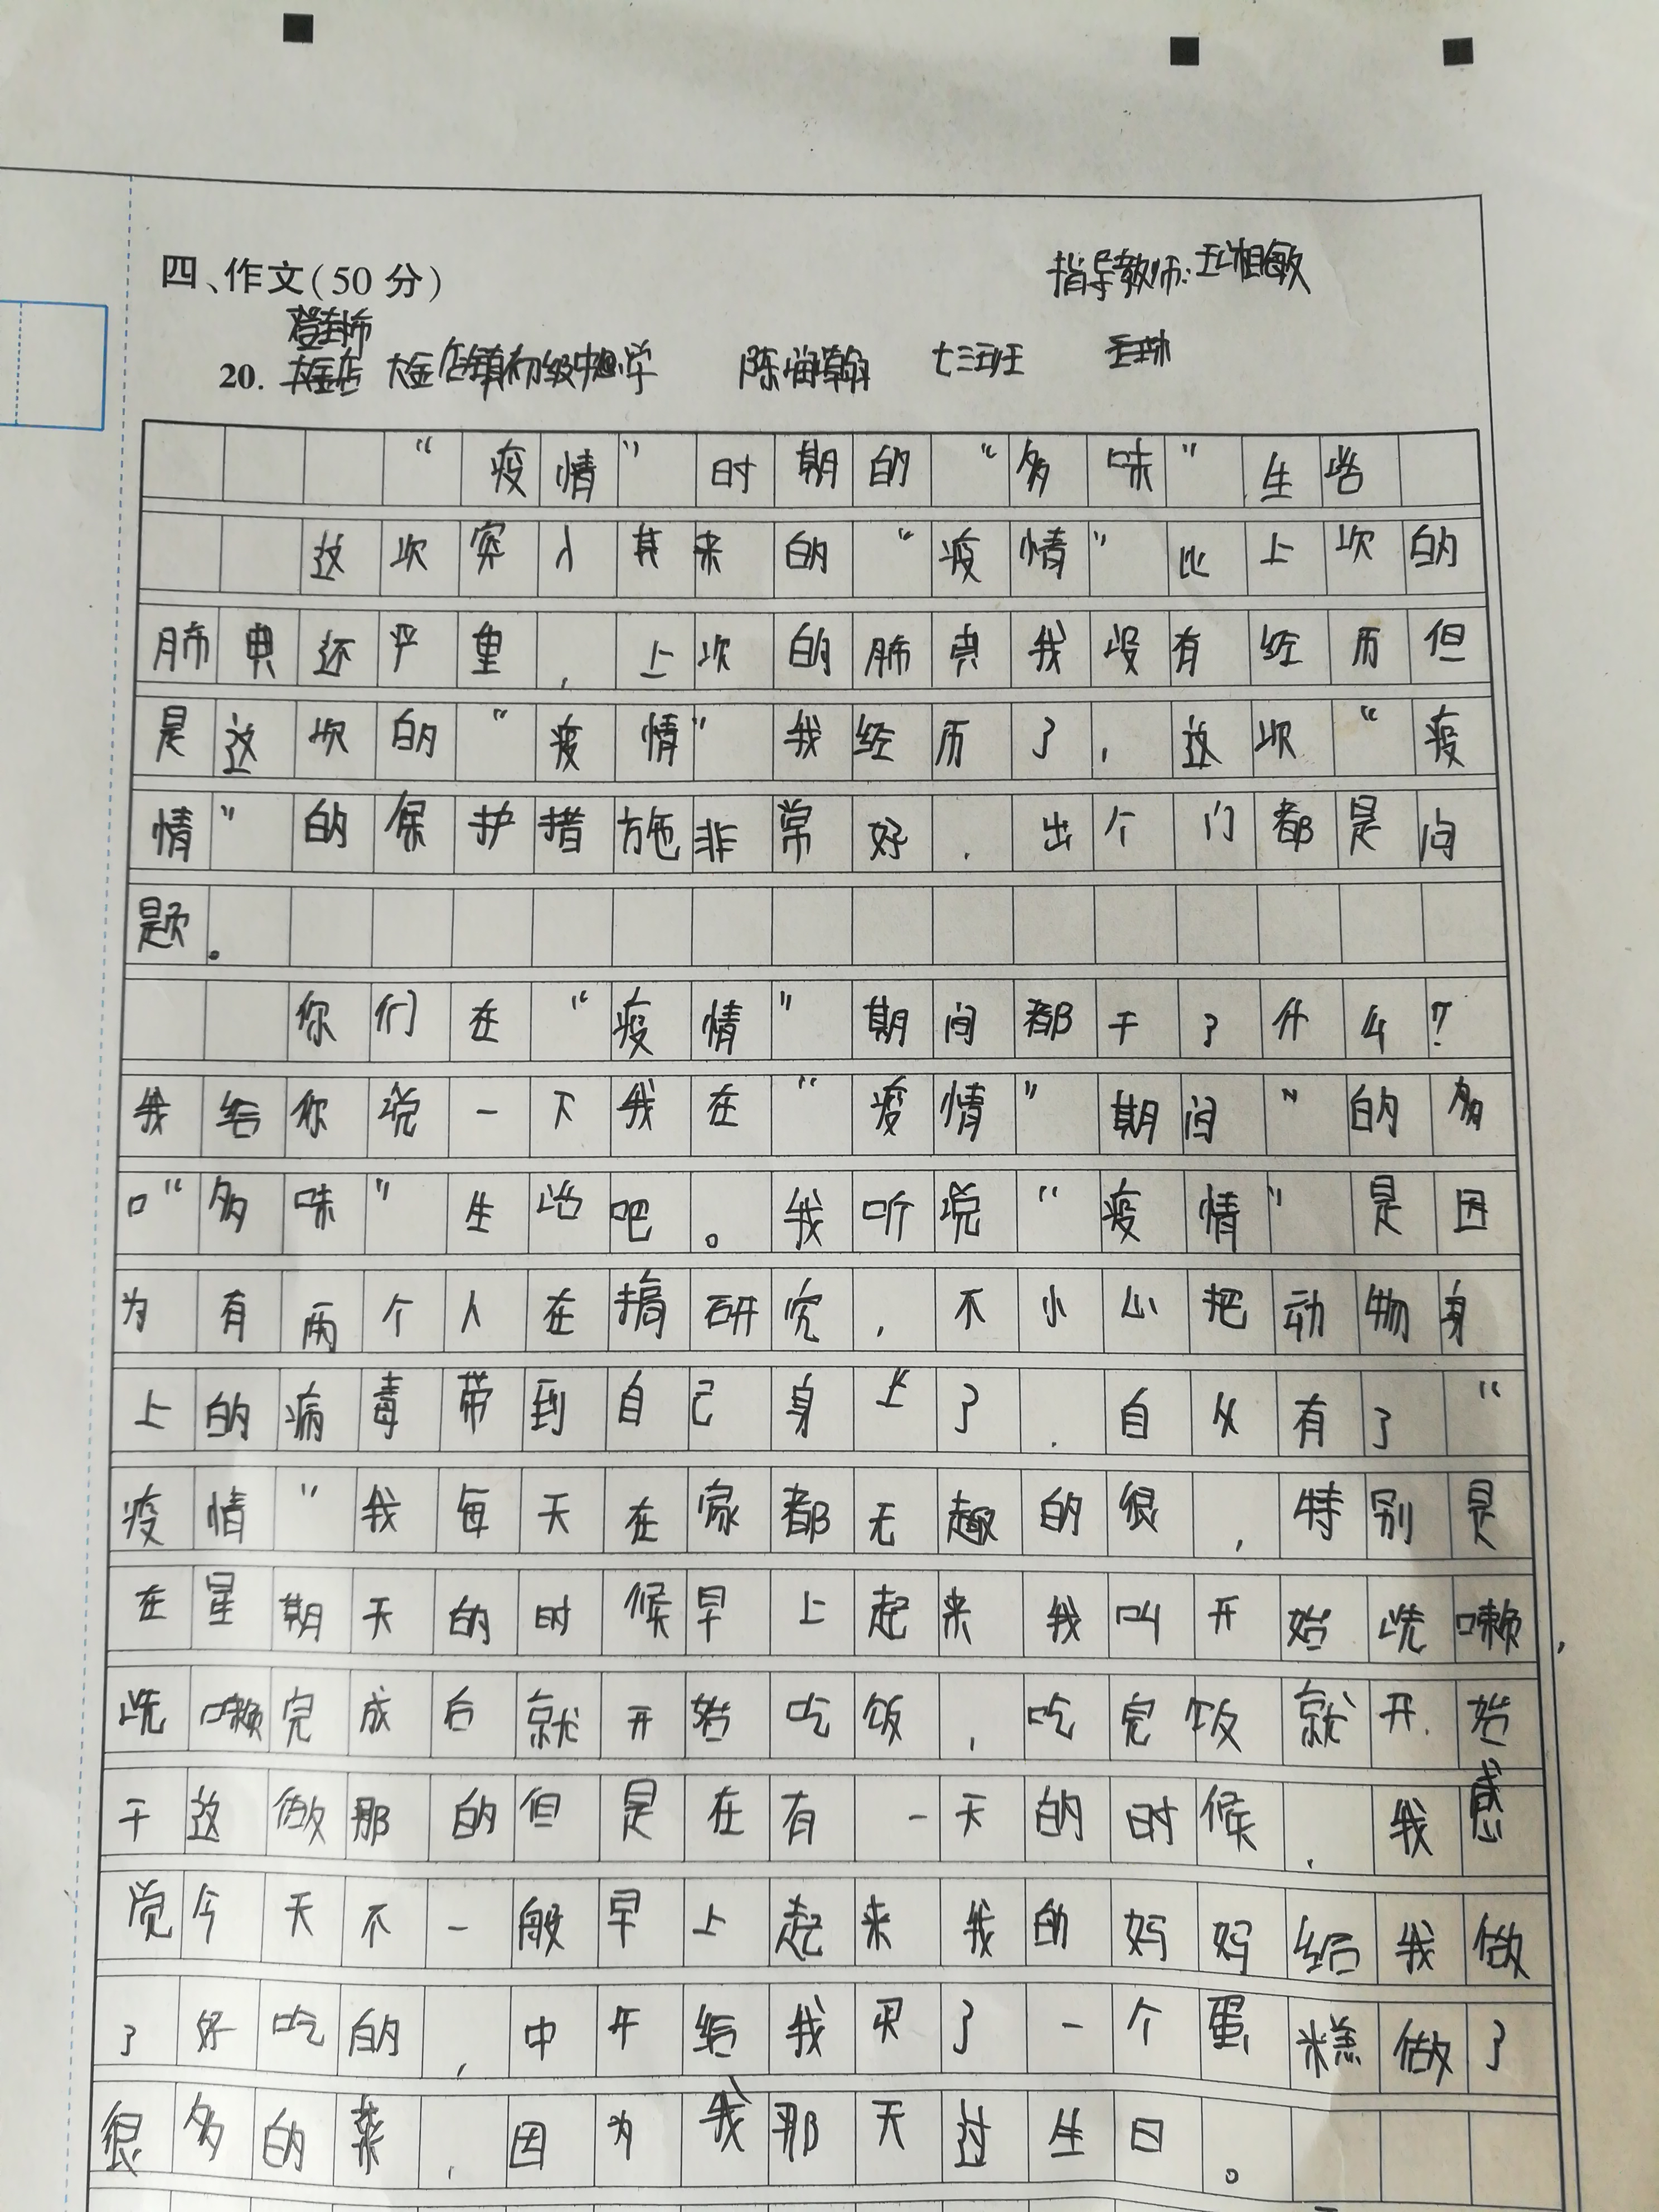 四、作文(50分)
指导教师:王湘敏
登封市
20. 大金店镇初级中学 陈海瀚 七三班
“疫情”时期的“多味”生活
这次突入其来的“疫情”比上次的
肺典还严重,上次的肺典我没有经历但
是这次的“疫情”我经历了,这次“疫
情”的保护措施非常好,出个门都是问
题。
你们在“疫情”期间都干了什么?
我给你说一下我在“疫情”期间”的多
口“多味”生活吧。我听说“疫情”是因
为有两个人在搞研究,不小心把动物身
上的病毒带到自己身上了.自从有了“
疫情”我每天在家都无趣的很,特别是
在星期天的时候早上起来我叫开始洗嗽,
洗嗽完成后就开始吃饭,吃完饭就开始
干这做那的但是在有一天的时候,我感
觉今天不一般早上起来我的妈妈给我做
了好吃的,中午给我买了一个蛋糕做了
很多的菜,因为我那天过生日。